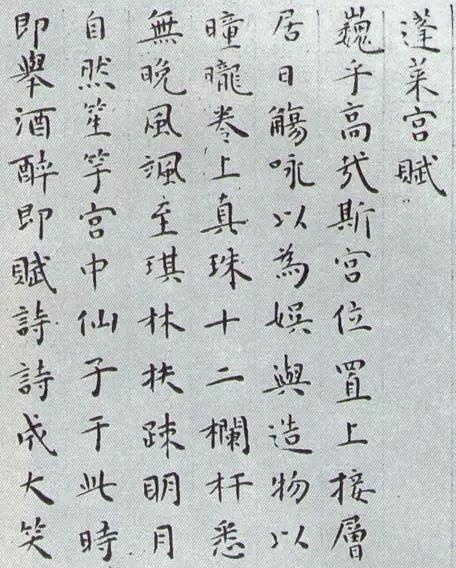 蓬莱宫賦
巍乎高哉斯宫位置上接層
居日觴咏以為娯與造物以
曈曨卷上真珠十二欄杆悉
無晚風颯至琪林扶踈明月
自然笙竽宫中仙子于此時
即舉酒醉即賦詩詩成大笑